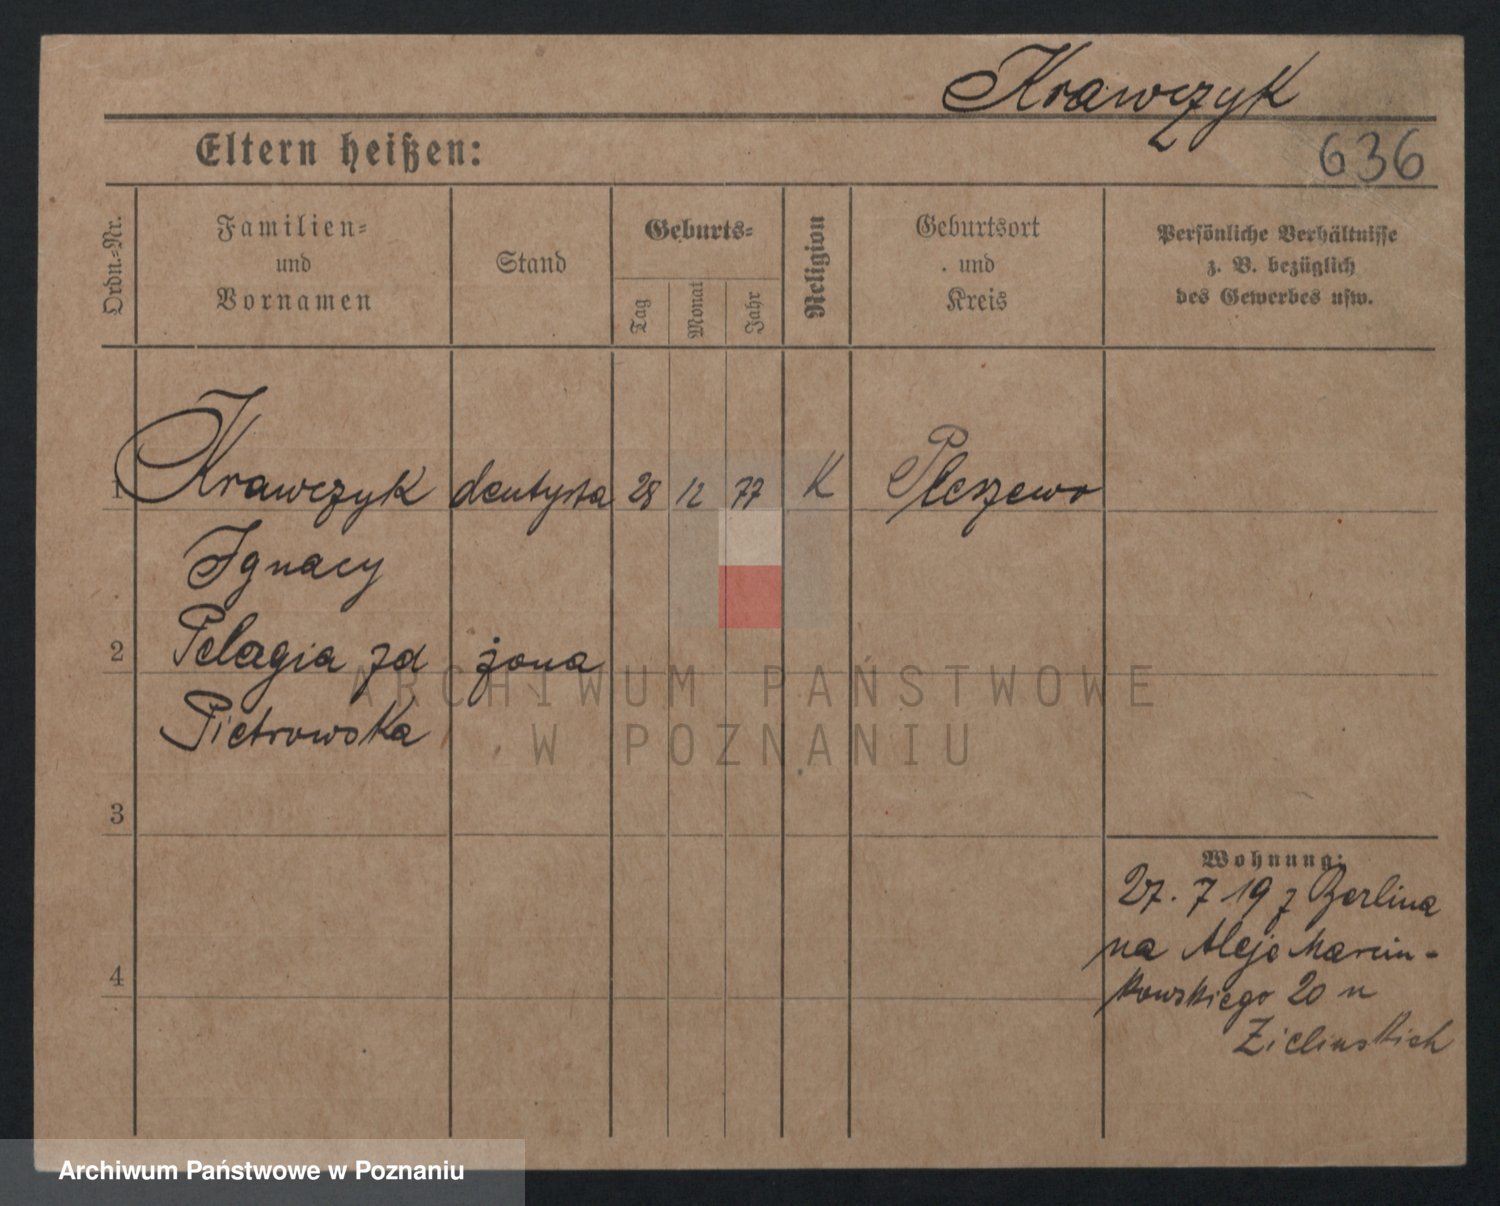 Krawczyk
Eltern heißen:
636
Ordn.-Nr.
Familien-
und
Vornamen
Stand
Geburts-
Tag
Monat
Jahr
Religion
Geburtsort
und
Kreis
Persönliche Verhältnisse
z. B. bezüglich
des Gewerbes usw.
1 Krawczyk dentysta 28 12 77 K Pleszewo
Ignacy
2 Pelagia zd żona
Pietrowska
ARCHIWUM PAŃSTWOWE
W POZNANIU
3
Wohnung:
27. 7 19 z Berlina
na Aleje Marcin-
kowskiego 20 u
Zielinskich
4
Archiwum Państwowe w Poznaniu